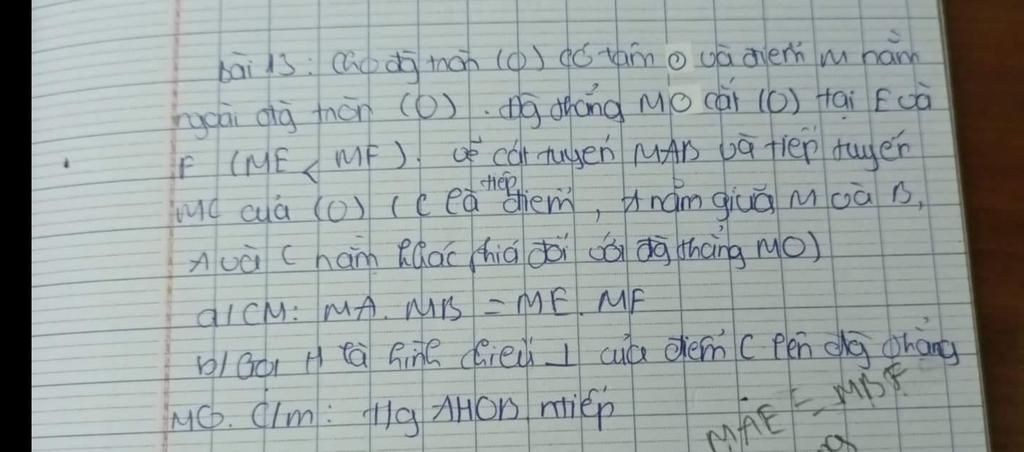 bài 13: Cho đg tròn (O) có tâm O và điểm M nằm
ngoài đg tròn (O). đg thẳng MO cắt (O) tại E và
F (ME < MF). vẽ cát tuyến MAB và tiếp tuyến
MC của (O) (C là tiếp điểm, A nằm giữa M và B,
A và C nằm khác phía đối với đg thẳng MO)
a/ CM: MA. MB = ME. MF
b/ Gọi H là hình chiếu ⊥ của điểm C lên đg thẳng
MO. C/m: tg AHOB ntiếp
MAE = MBF